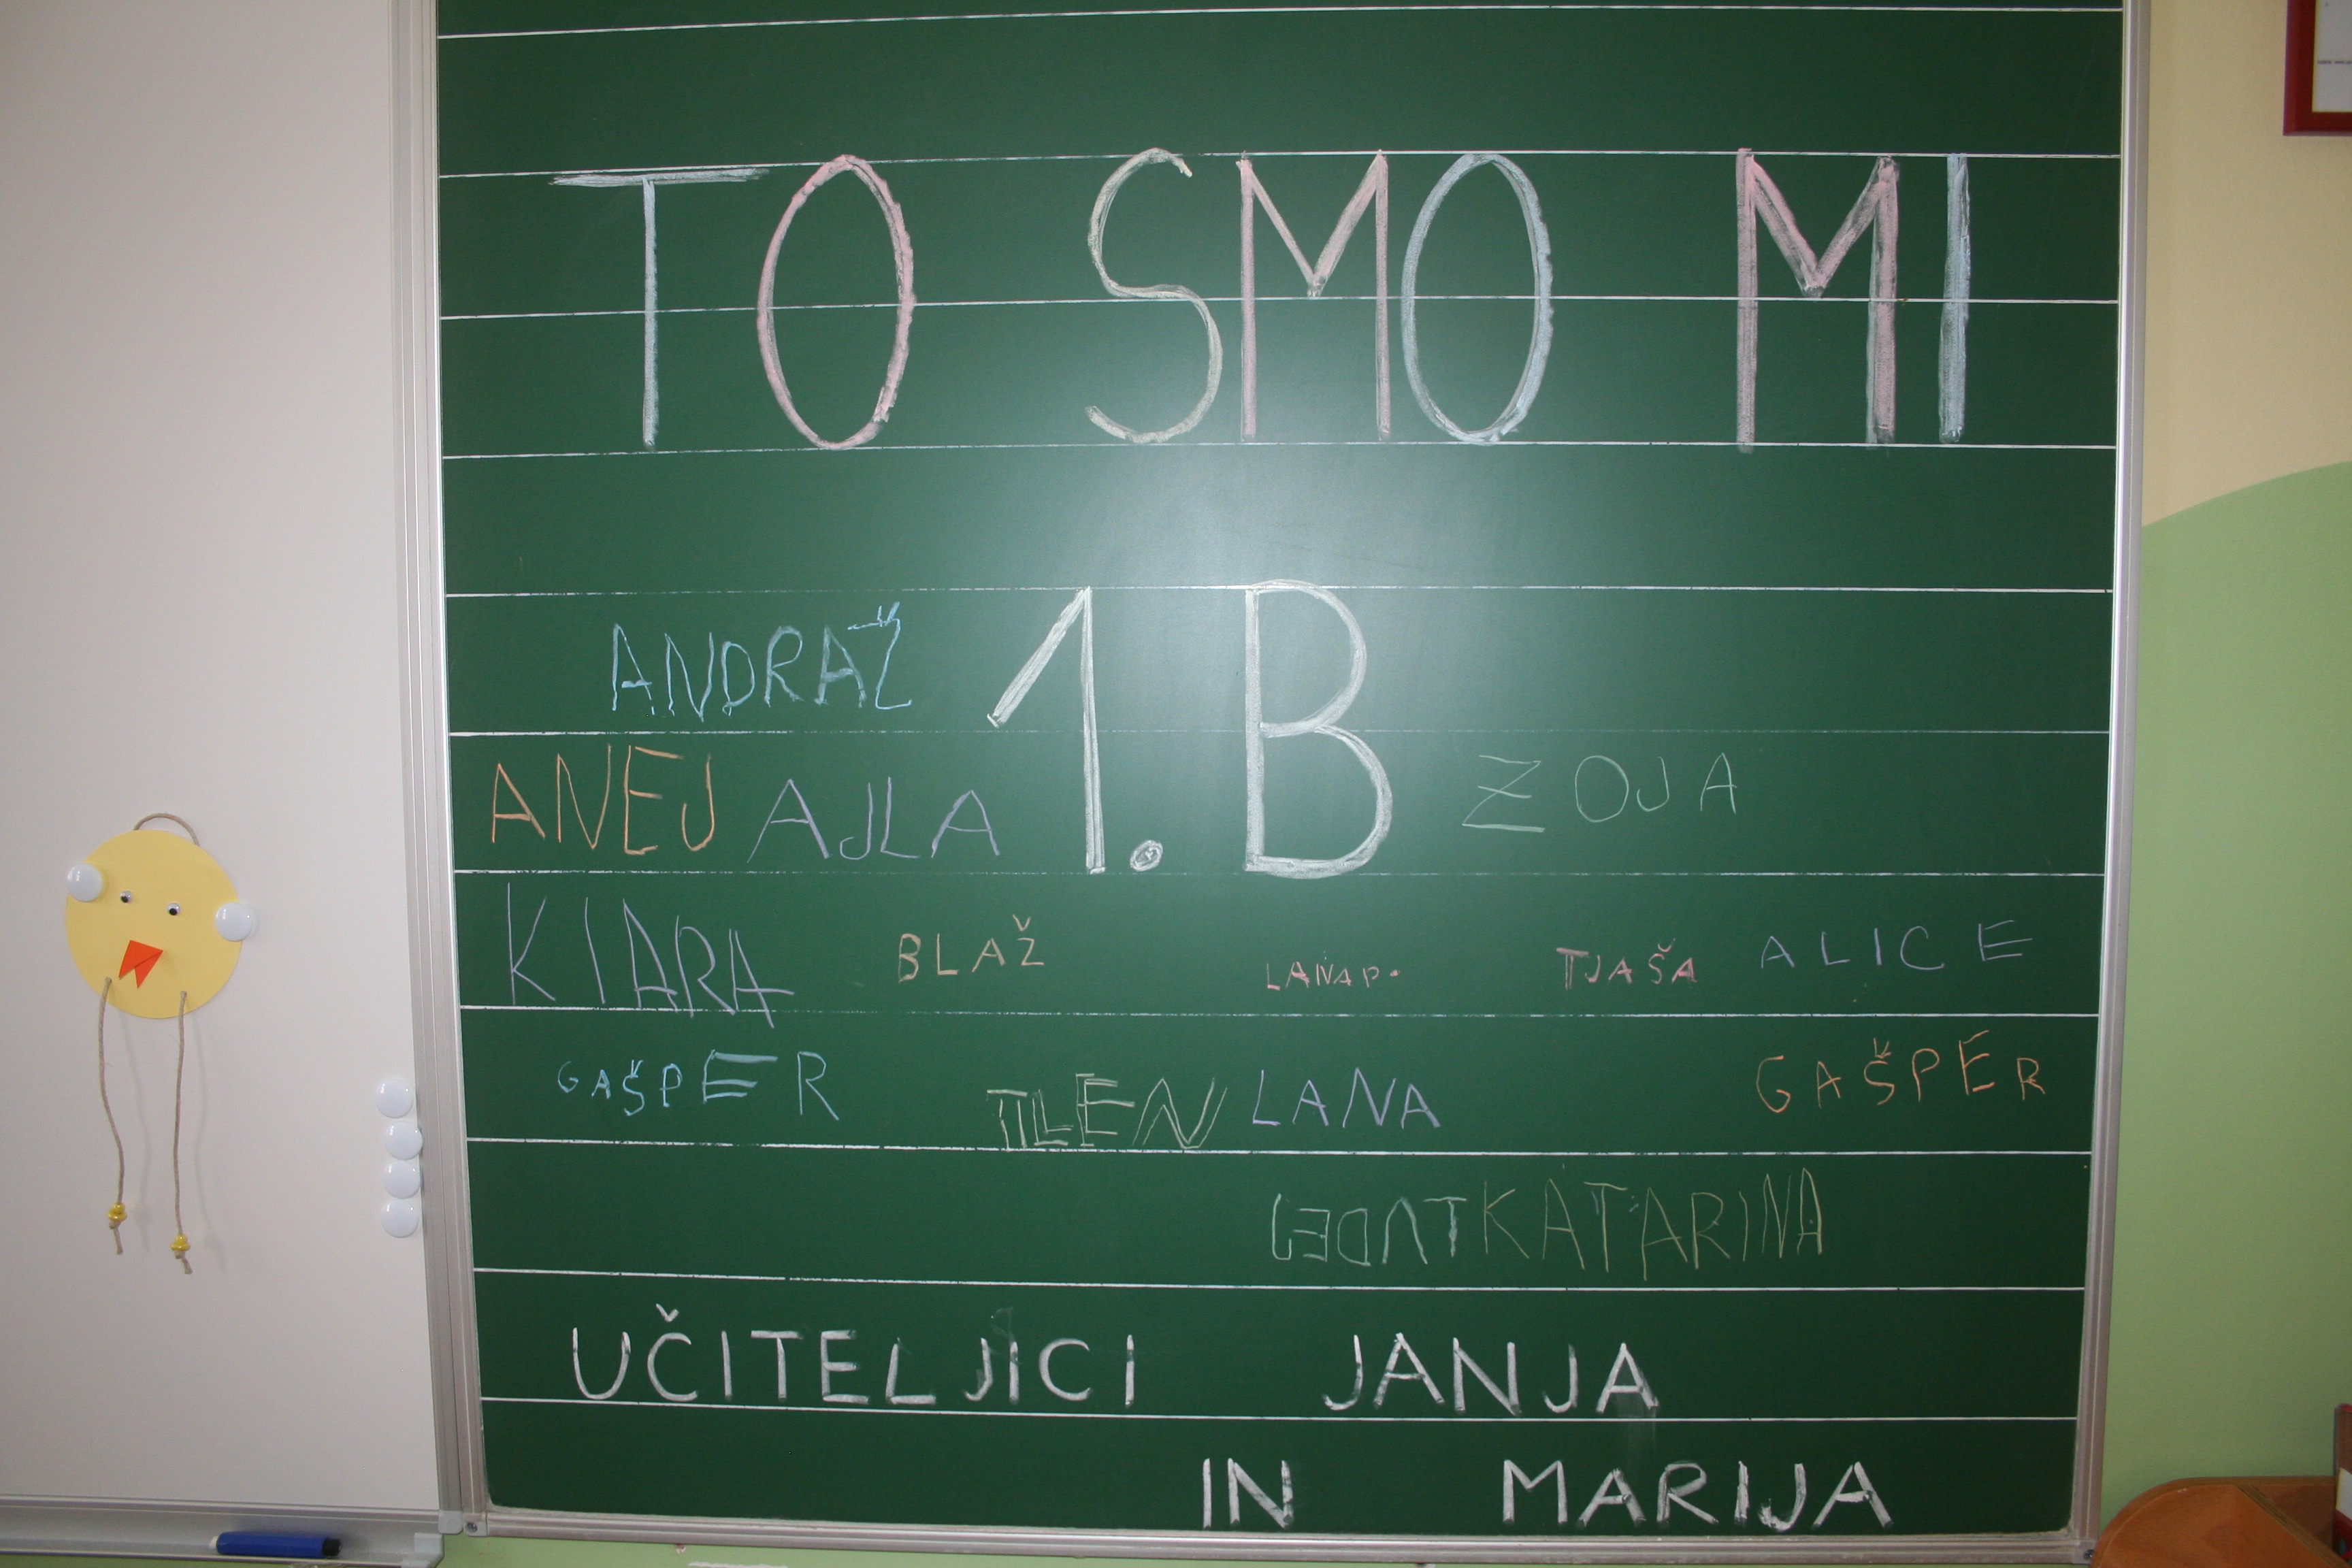 TO SMO MI
1. B
ANDRAŽ
ANEJ AJLA ZOJA
KIARA BLAŽ LANA P. TJAŠA ALICE
GAŠPER TILEN LANA GAŠPER
TADEJ KATARINA
UČITELJICI JANJA
IN MARIJA